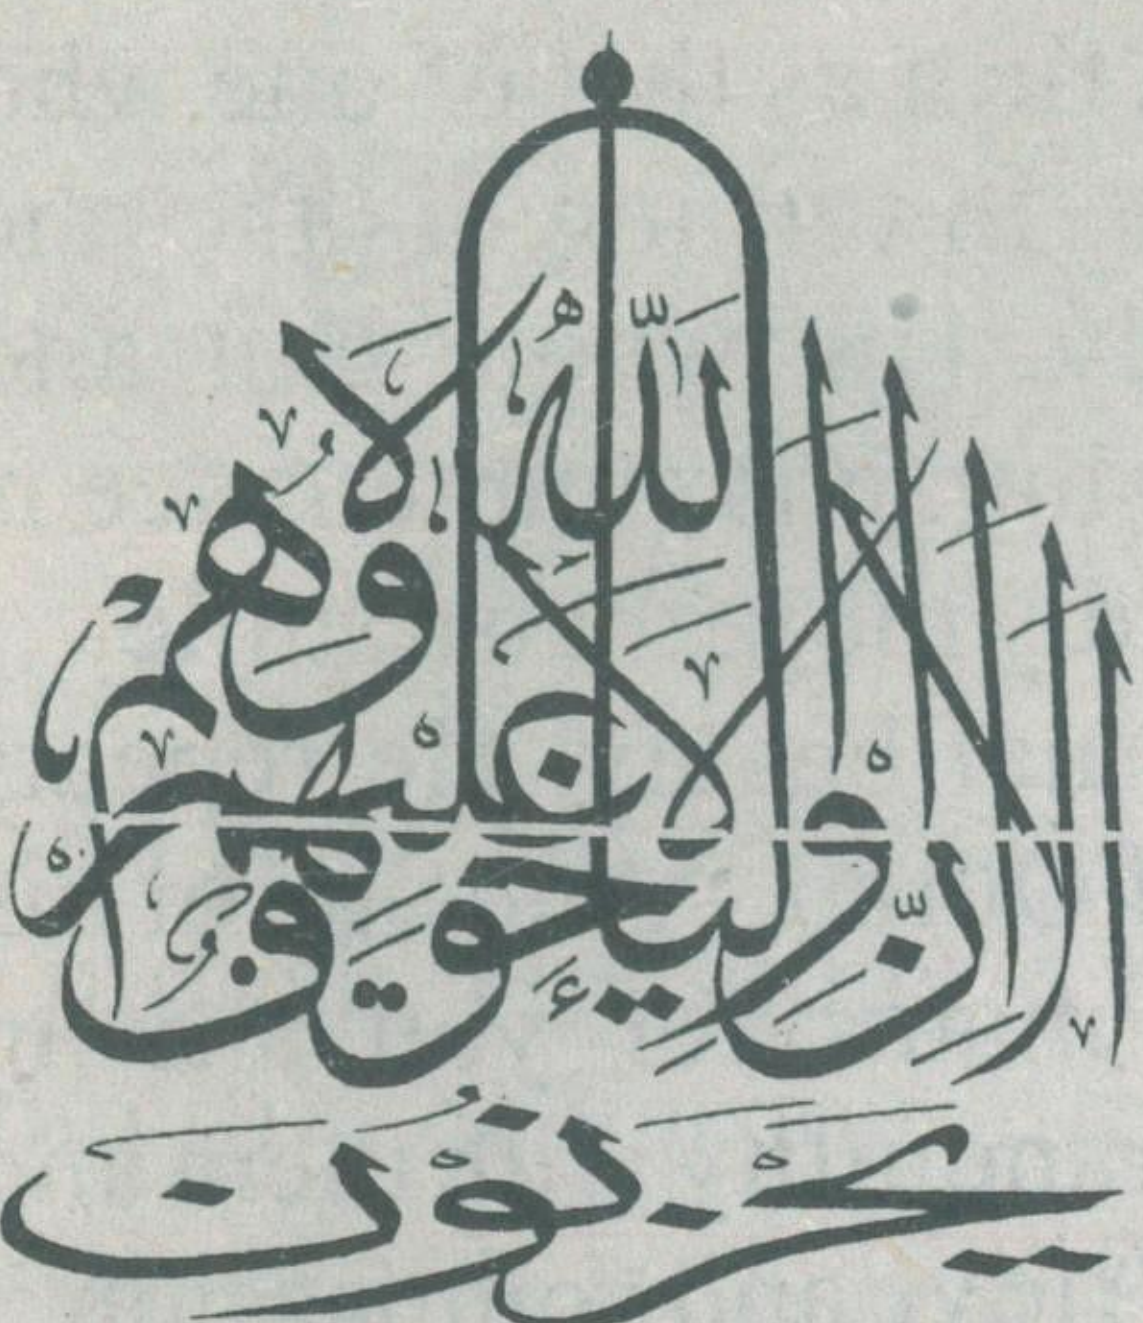 أَلَا إِنَّ أَوْلِيَاءَ اللَّهِ لَا خَوْفٌ عَلَيْهِمْ وَلَا هُمْ
يَحْزَنُونَ